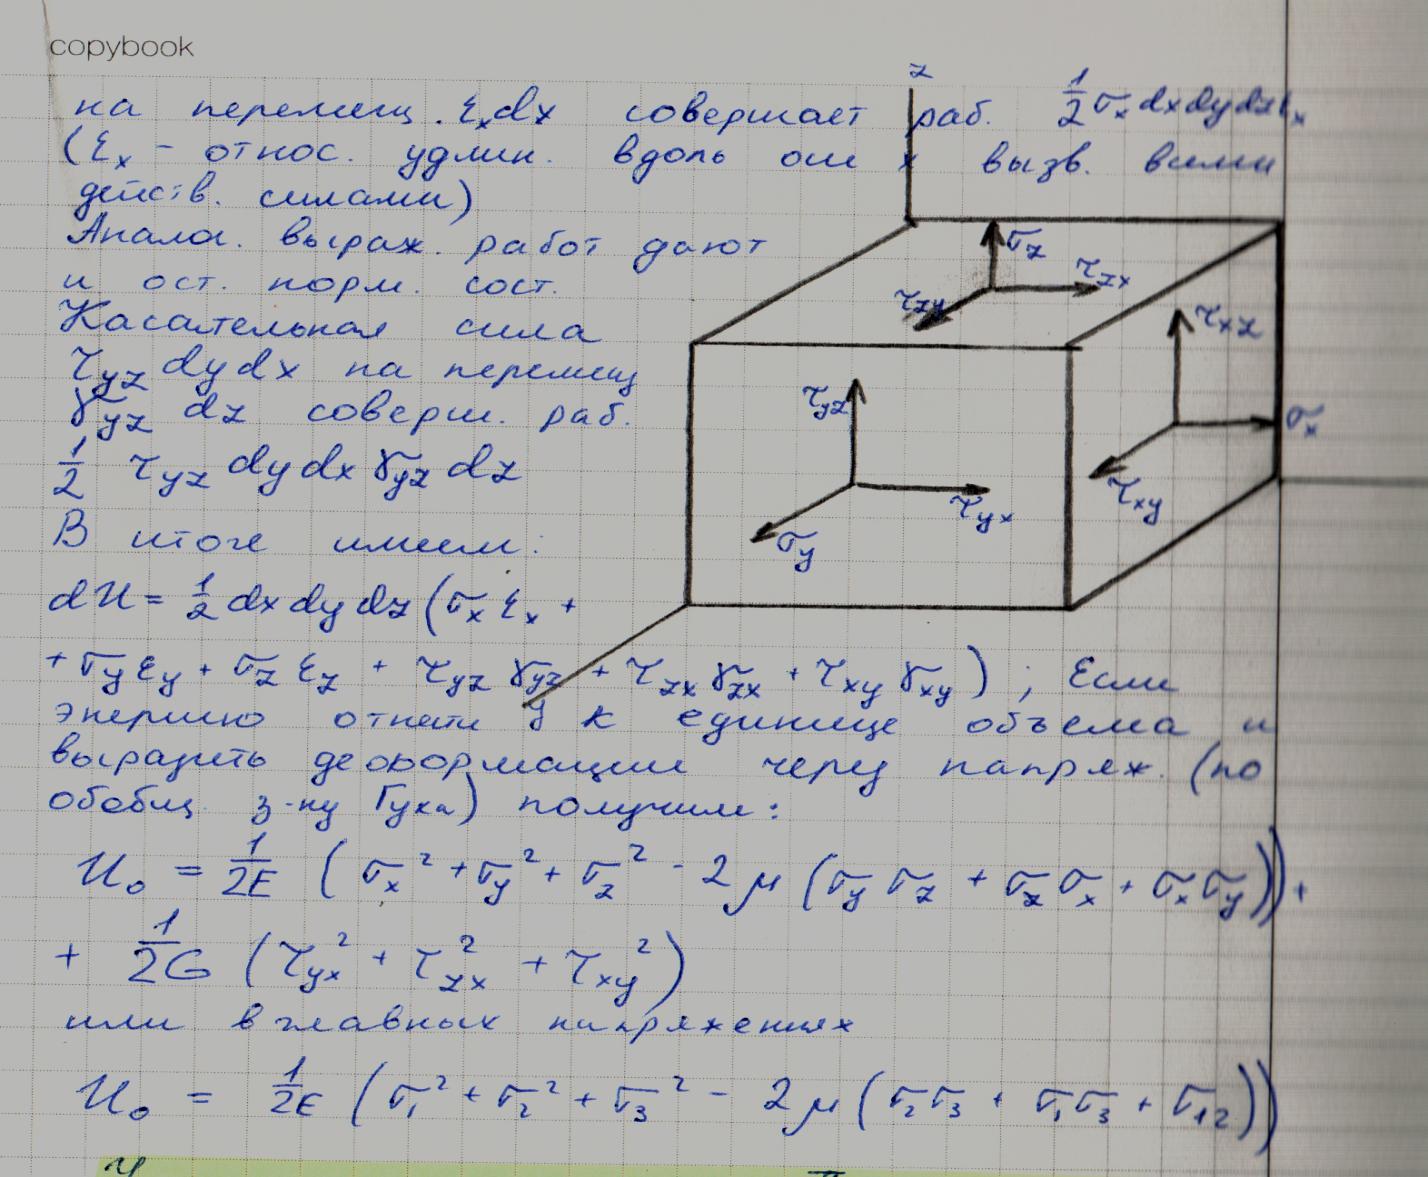 copybook
на перемещ. εₓdx совершает раб. 1/2 σₓ dx dy dz εₓ
(εₓ - относ. удлин. вдоль оси x вызв. всеми
действ. силами)
Аналог. выраж. работ дают
и ост. норм. сост.
Касательная сила
τ_yz dy dx на перемещ
γ_yz dz соверш. раб.
1/2 τ_yz dy dx γ_yz dz
В итоге имеем:
dU = 1/2 dx dy dz (σₓ εₓ +
+ σ_y ε_y + σ_z ε_z + τ_yz γ_yz + τ_zx γ_zx + τ_xy γ_xy) ; Если
энергию отнести к единице объема и
выразить деформации через напряж. (по
обобщ. з-ну Гука) получим:
U₀ = 1/2E (σₓ² + σ_y² + σ_z² - 2μ (σ_y σ_z + σ_z σ_x + σ_x σ_y)) +
+ 1/2G (τ_yx² + τ_zx² + τ_xy²)
или в главных напряжениях
U₀ = 1/2E (σ₁² + σ₂² + σ₃² - 2μ (σ₂σ₃ + σ₁σ₃ + σ₁₂))
z
σ_z
τ_zx
τ_zy
τ_xz
σ_x
τ_xy
τ_yz
τ_yx
σ_y
y